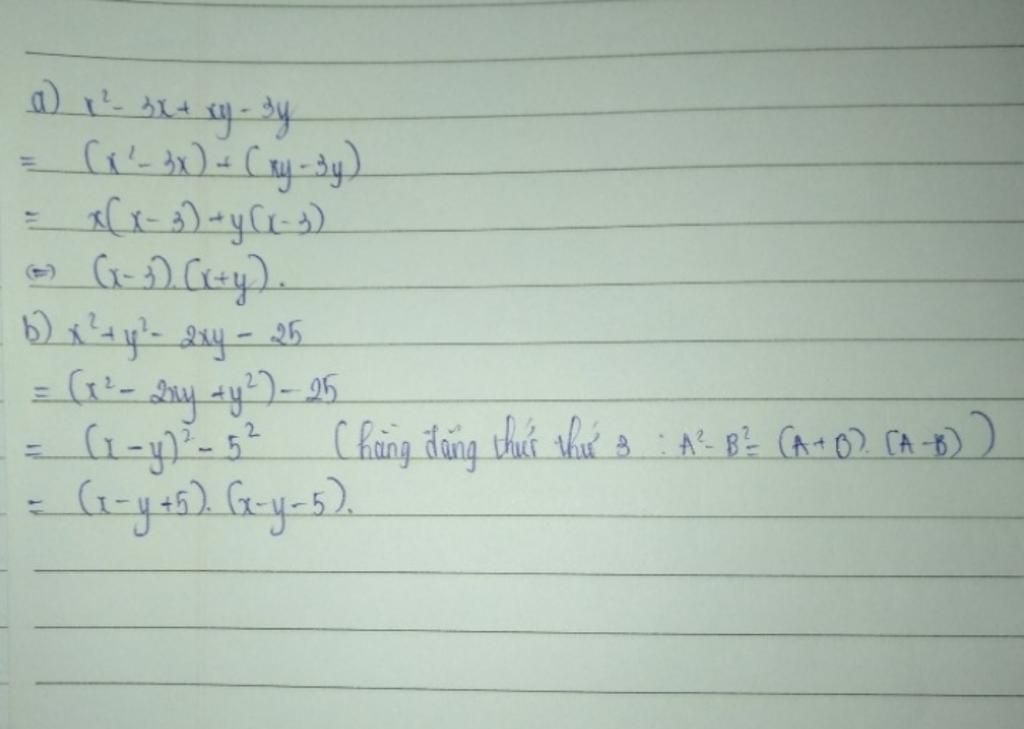 a) x² - 3x + xy - 3y
= (x² - 3x) + (xy - 3y)
= x(x - 3) + y(x - 3)
(=) (x - 3).(x + y).
b) x² + y² - 2xy - 25
= (x² - 2xy + y²) - 25
= (x - y)² - 5² (hằng đẳng thức thứ 3 : A² - B² = (A + B).(A - B))
= (x - y + 5).(x - y - 5).